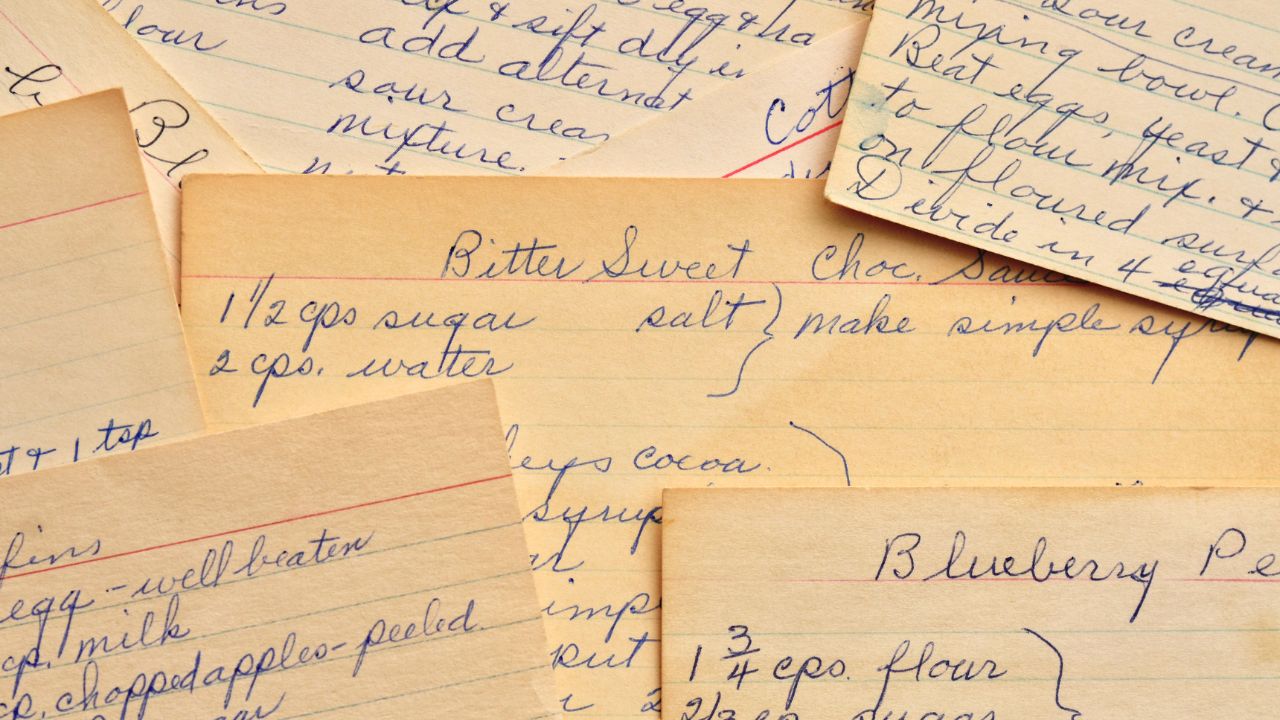 flour
& sift dry in
add alternat
sour crea
mixture.
Bl
Cot
sour cream
mixing bowl.
Beat eggs, yeast &
to flour mix. &
on floured surf
Divide in 4 equa
Bitter Sweet Choc. Sauc
1 1/2 cps sugar salt } make simple syrup
2 cps. watter
leys cocoa.
syrup
imp
put
2
t & 1 tsp
fins
egg - well beaten
cp. milk
cp. chopped apples - peeled.
Blueberry Pe
1 3/4 cps. flour
2/3 cp sugar